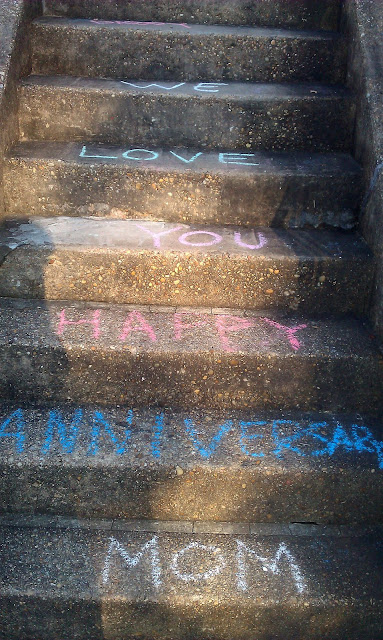 WE
LOVE
YOU
HAPPY
ANNIVERSARY
MOM